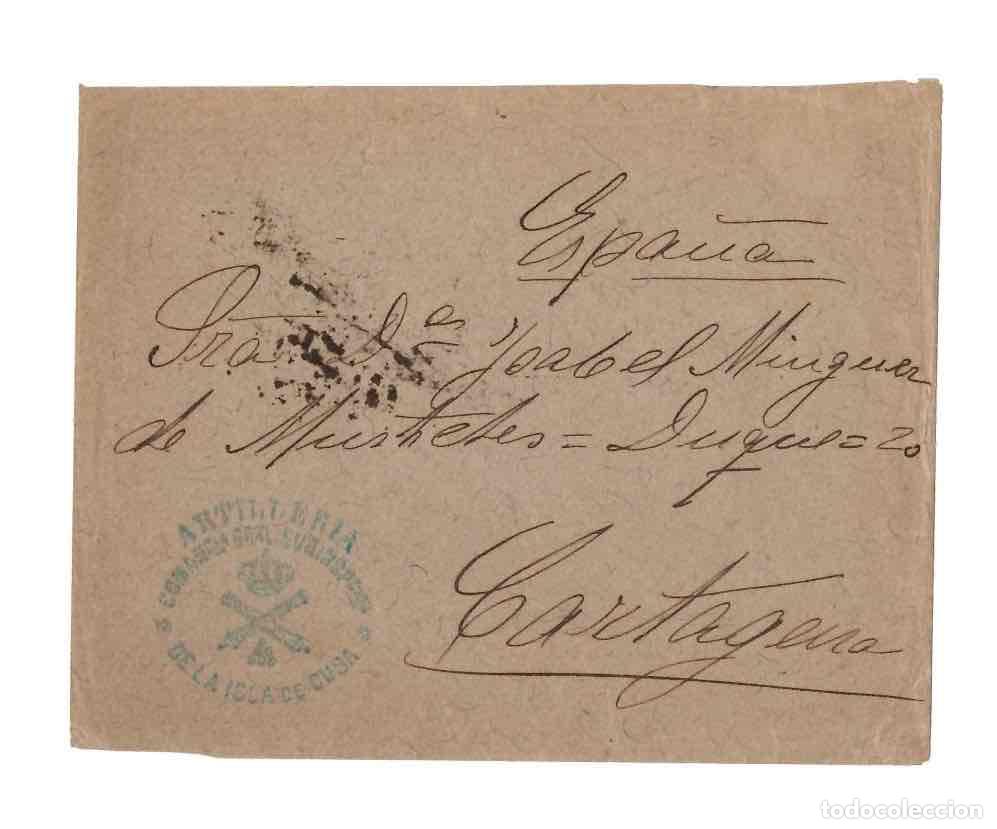 España
Sra. Dª Ysabel Minguez
de Mustieles = Duque = 20
Cartagena
ARTILLERIA
COMANDANCIA GRAL SUBINSPECCION
DE LA ISLA DE CUBA
todocoleccion